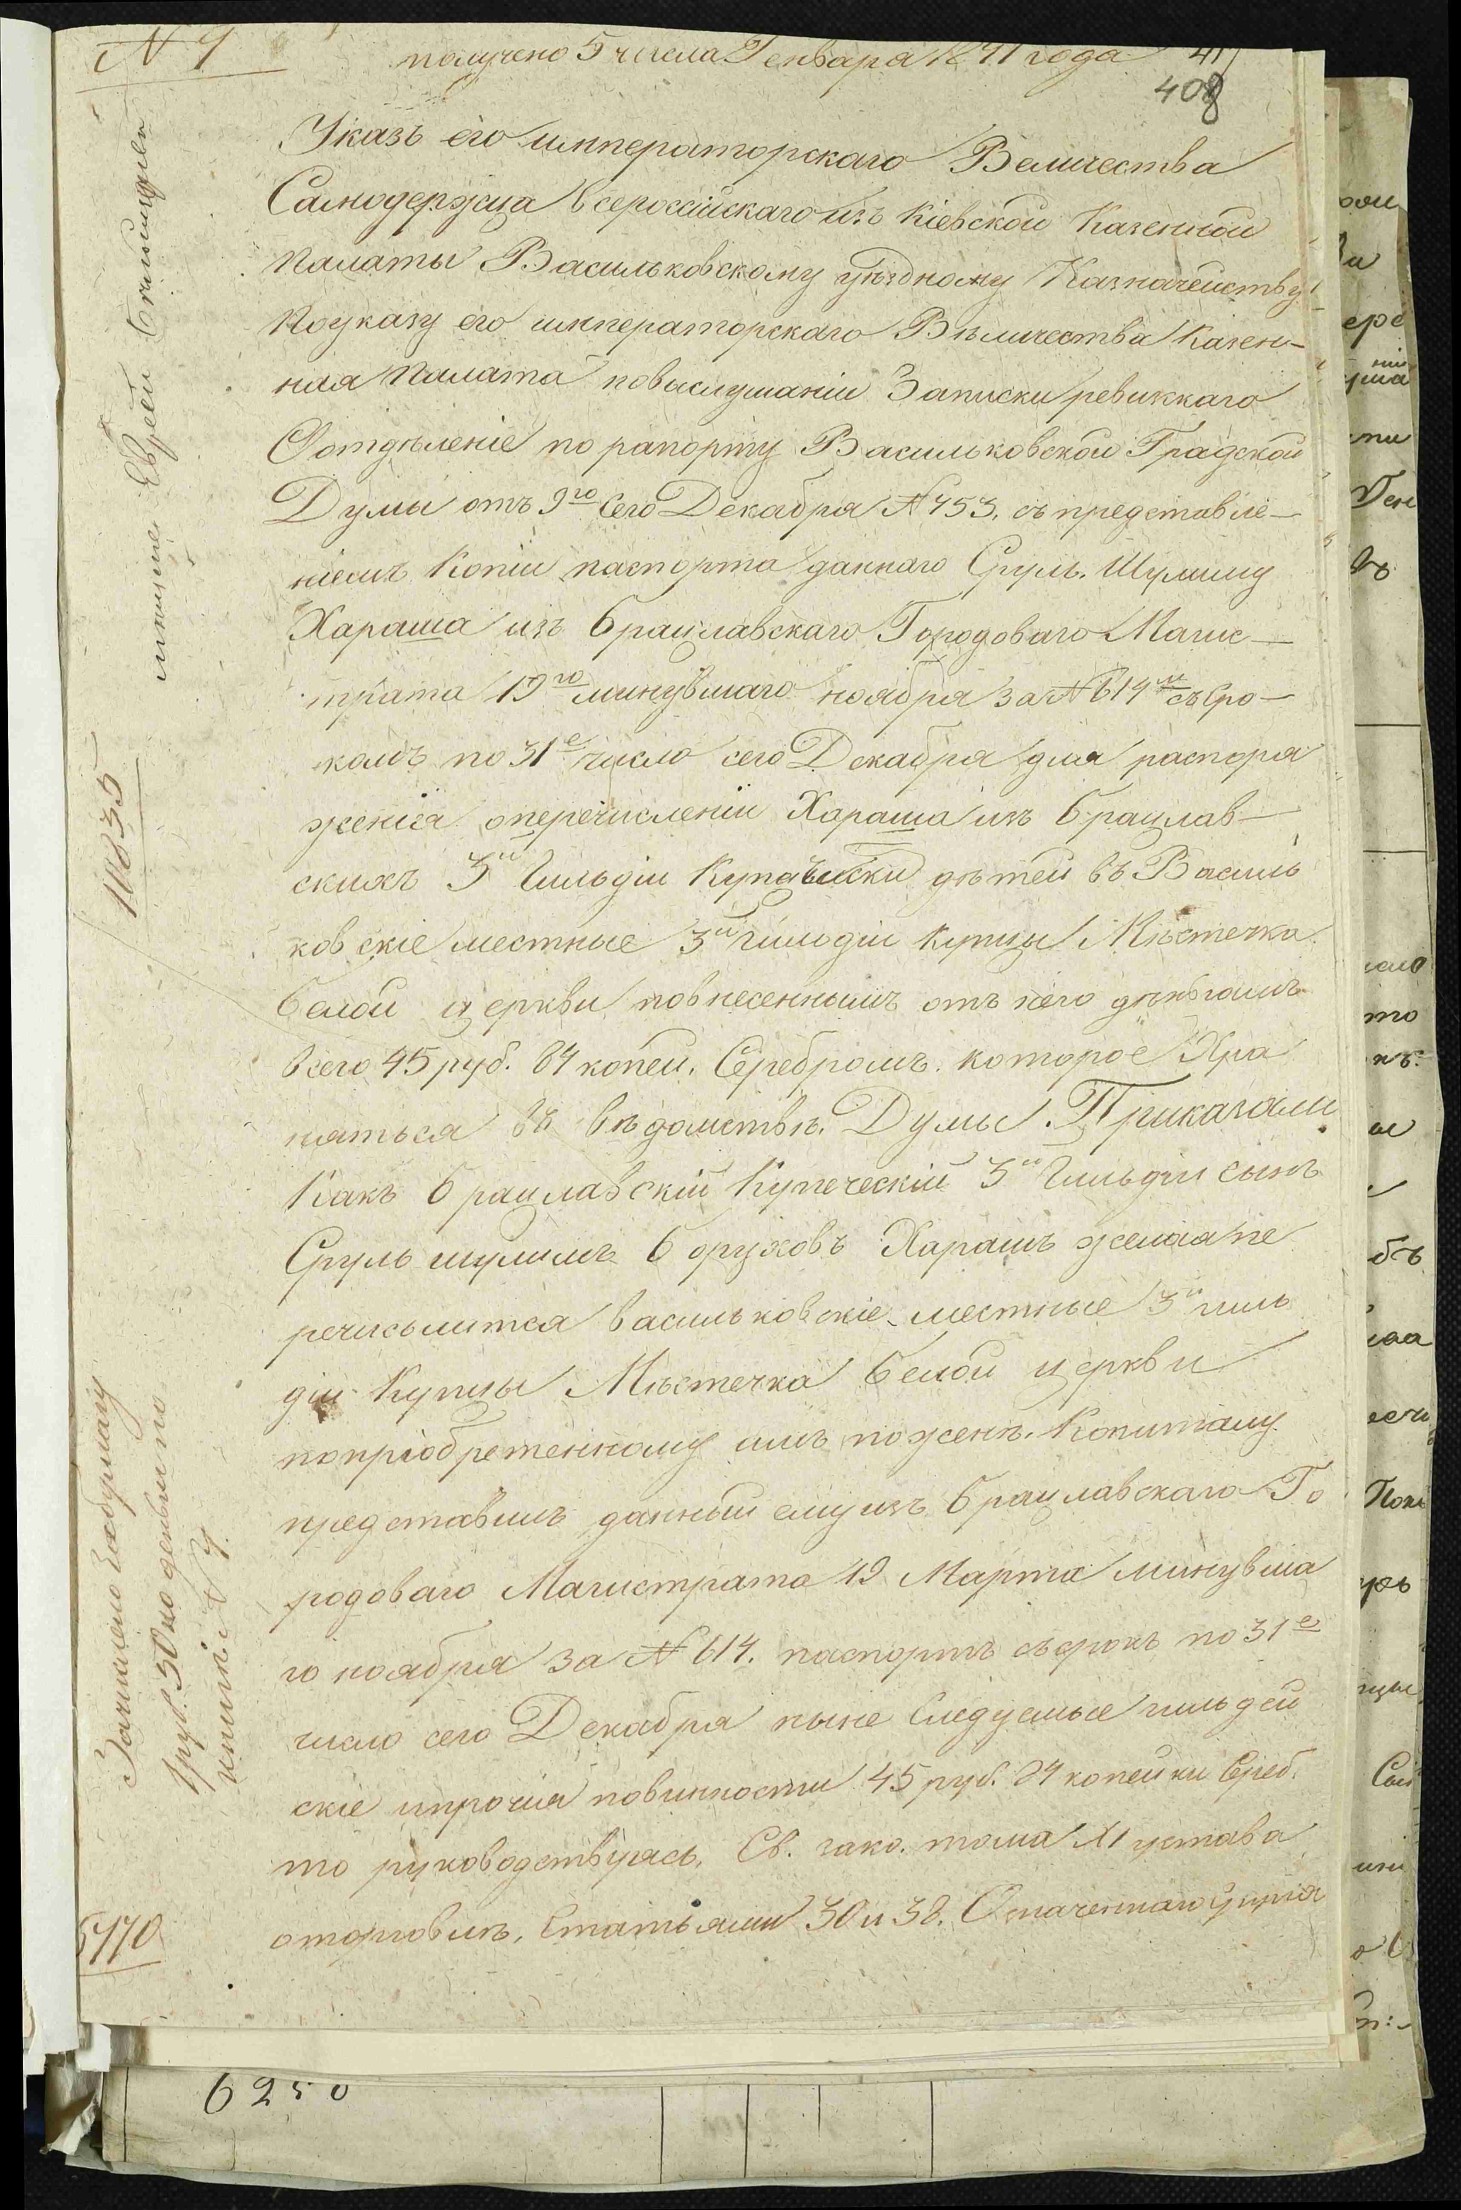 N 9
получено 5 числа Генваря 1841 года
41
408
Указъ его императорскаго Величества
Самодержца всероссійскаго изъ Кіевской Казенной
Палаты Васильковскому уѣздному Казначейству
По указу его императорскаго Вѣличества Казен-
ная Палата повыслушаніи Записки ревизкаго
Отдѣленіе по рапорту Васильковской Градской
Думы отъ 9го сего Декабря N 453. съ представле-
ніемъ Копіи паспорта даннаго Сруль. Шулиму
Хараша изъ брацлавскаго Городоваго Магис-
трата 19го минувшаго ноября за N 614м съ Сро-
комъ по 31е число сего Декабря для распоря
женія оперечисленіи Хараша изъ брацлав-
скихъ 3й Гильдіи дѣтей въ Василь
ковскіе местные 3й гильдіи купцы Мѣстечка
белой церкви повнесеннымъ отъ него дѣньгамъ
всего 45 руб. 84 копеи. Серебромъ. которое Хра
няться въ вѣдомствѣ. Думы. Приказали
Какъ брацлавскій Купеческій 3й Гильдіи сынъ
Сруль шулимъ боруховъ Харашъ желая пе
речислится васильковскіе местные 3й гиль
діи Купцы Мѣстечка белой церкви
попріобретенному имъ по женѣ. Копиталу
представилъ данный ему изъ брацлавскаго Го
родоваго Магистрата 19 Марта минувша
го ноября за N 614. паспортъ съ срокъ по 31е
число сего Декабря ныне Следуемые гильдей
скіе ипрочія повинности 45 руб. 84 копейки Сереб.
то руководствуясь. Св. зако. тома XI устава
оторговлѣ. Статьями 30 и 38. Означеннаго
Евреи
18835
1 руб. 50 ко деньги по
книги N 4.
5170
6250